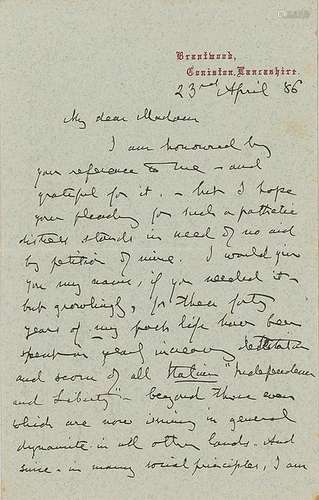 Brantwood,
Coniston, Lancashire.
23rd April '86
My dear Madam
I am honoured by
your reference to me - and
grateful for it. - but I hope
your pleading for such a pathetic
distress stands in need of no aid
by petition of mine. I would give
you my name, if you needed it -
but growlingly, for these forty
years of my past life have been
spent in yearly increasing
and scorn of all Italian "Independence
and Liberty" - beyond those even
which are now issuing in general
dynamite in all other lands. And
since - in many social principles, I am